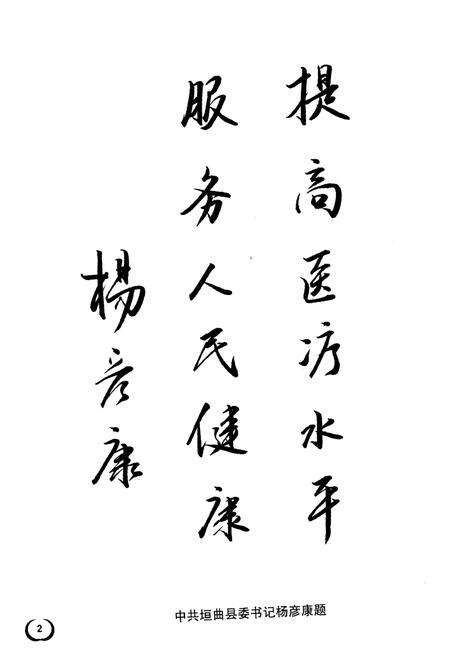 提高医疗水平
服务人民健康
楊彦康
中共垣曲县委书记杨彦康题
2